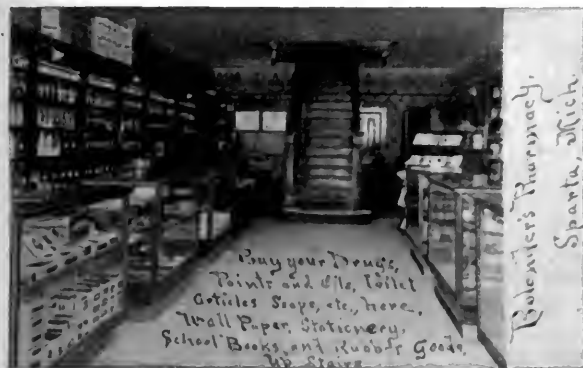 Buy your Drugs,
Paints and Oils, Toilet
Articles Soaps, etc., here.
Wall Paper, Stationery,
School Books, and Rubber Goods,
Up Stairs
Pharmacy,
Sparta, Mich.